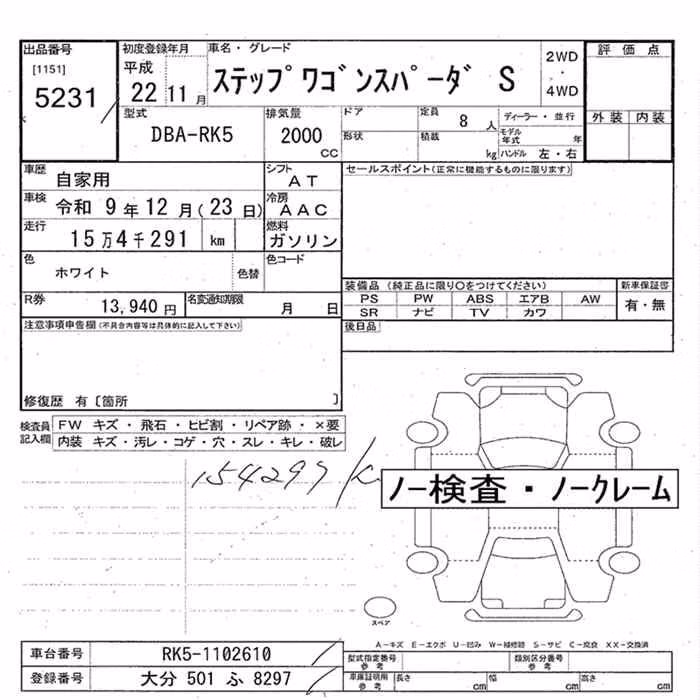 出品番号 初度登録年月 車名・グレード 2WD・4WD 評価点
[1151] 5231 平成 22 11月 ステップワゴンスパーダ S
型式 排気量 ドア 定員 8人 ディーラー・並行 外装 内装
DBA-RK5 2000 CC 形状 積載 kg モデル年式 年 ハンドル 左・右
車歴 自家用 シフト AT セールスポイント(正常に機能するものに限ります)
車検 令和 9年 12月(23日) 冷房 AAC
走行 15万4千291 km 燃料 ガソリン
色 ホワイト 色替 色コード
装備品 (純正品に限り〇をつけてください) 新車保証書
PS PW ABS エアB AW 有・無
SR ナビ TV カワ
R券 13,940円 名変通知期限 月 日
後日品
注意事項申告欄(不具合内容等は具体的に記入して下さい)
修復歴 有〔箇所 〕
検査員記入欄 FW キズ・飛石・ヒビ割・リペア跡・×要
内装 キズ・汚レ・コゲ・穴・スレ・キレ・破レ
154299 K
ノー検査・ノークレーム
スペア
A-キズ E-エクボ U-凹み W-補修跡 S-サビ C-腐食 XX-交換済
車台番号 RK5-1102610 型式指定番号 参考 類別区分番号 参考
登録番号 大分 501 ふ 8297 車庫証明用 参考 長さ cm 幅 cm 高さ cm